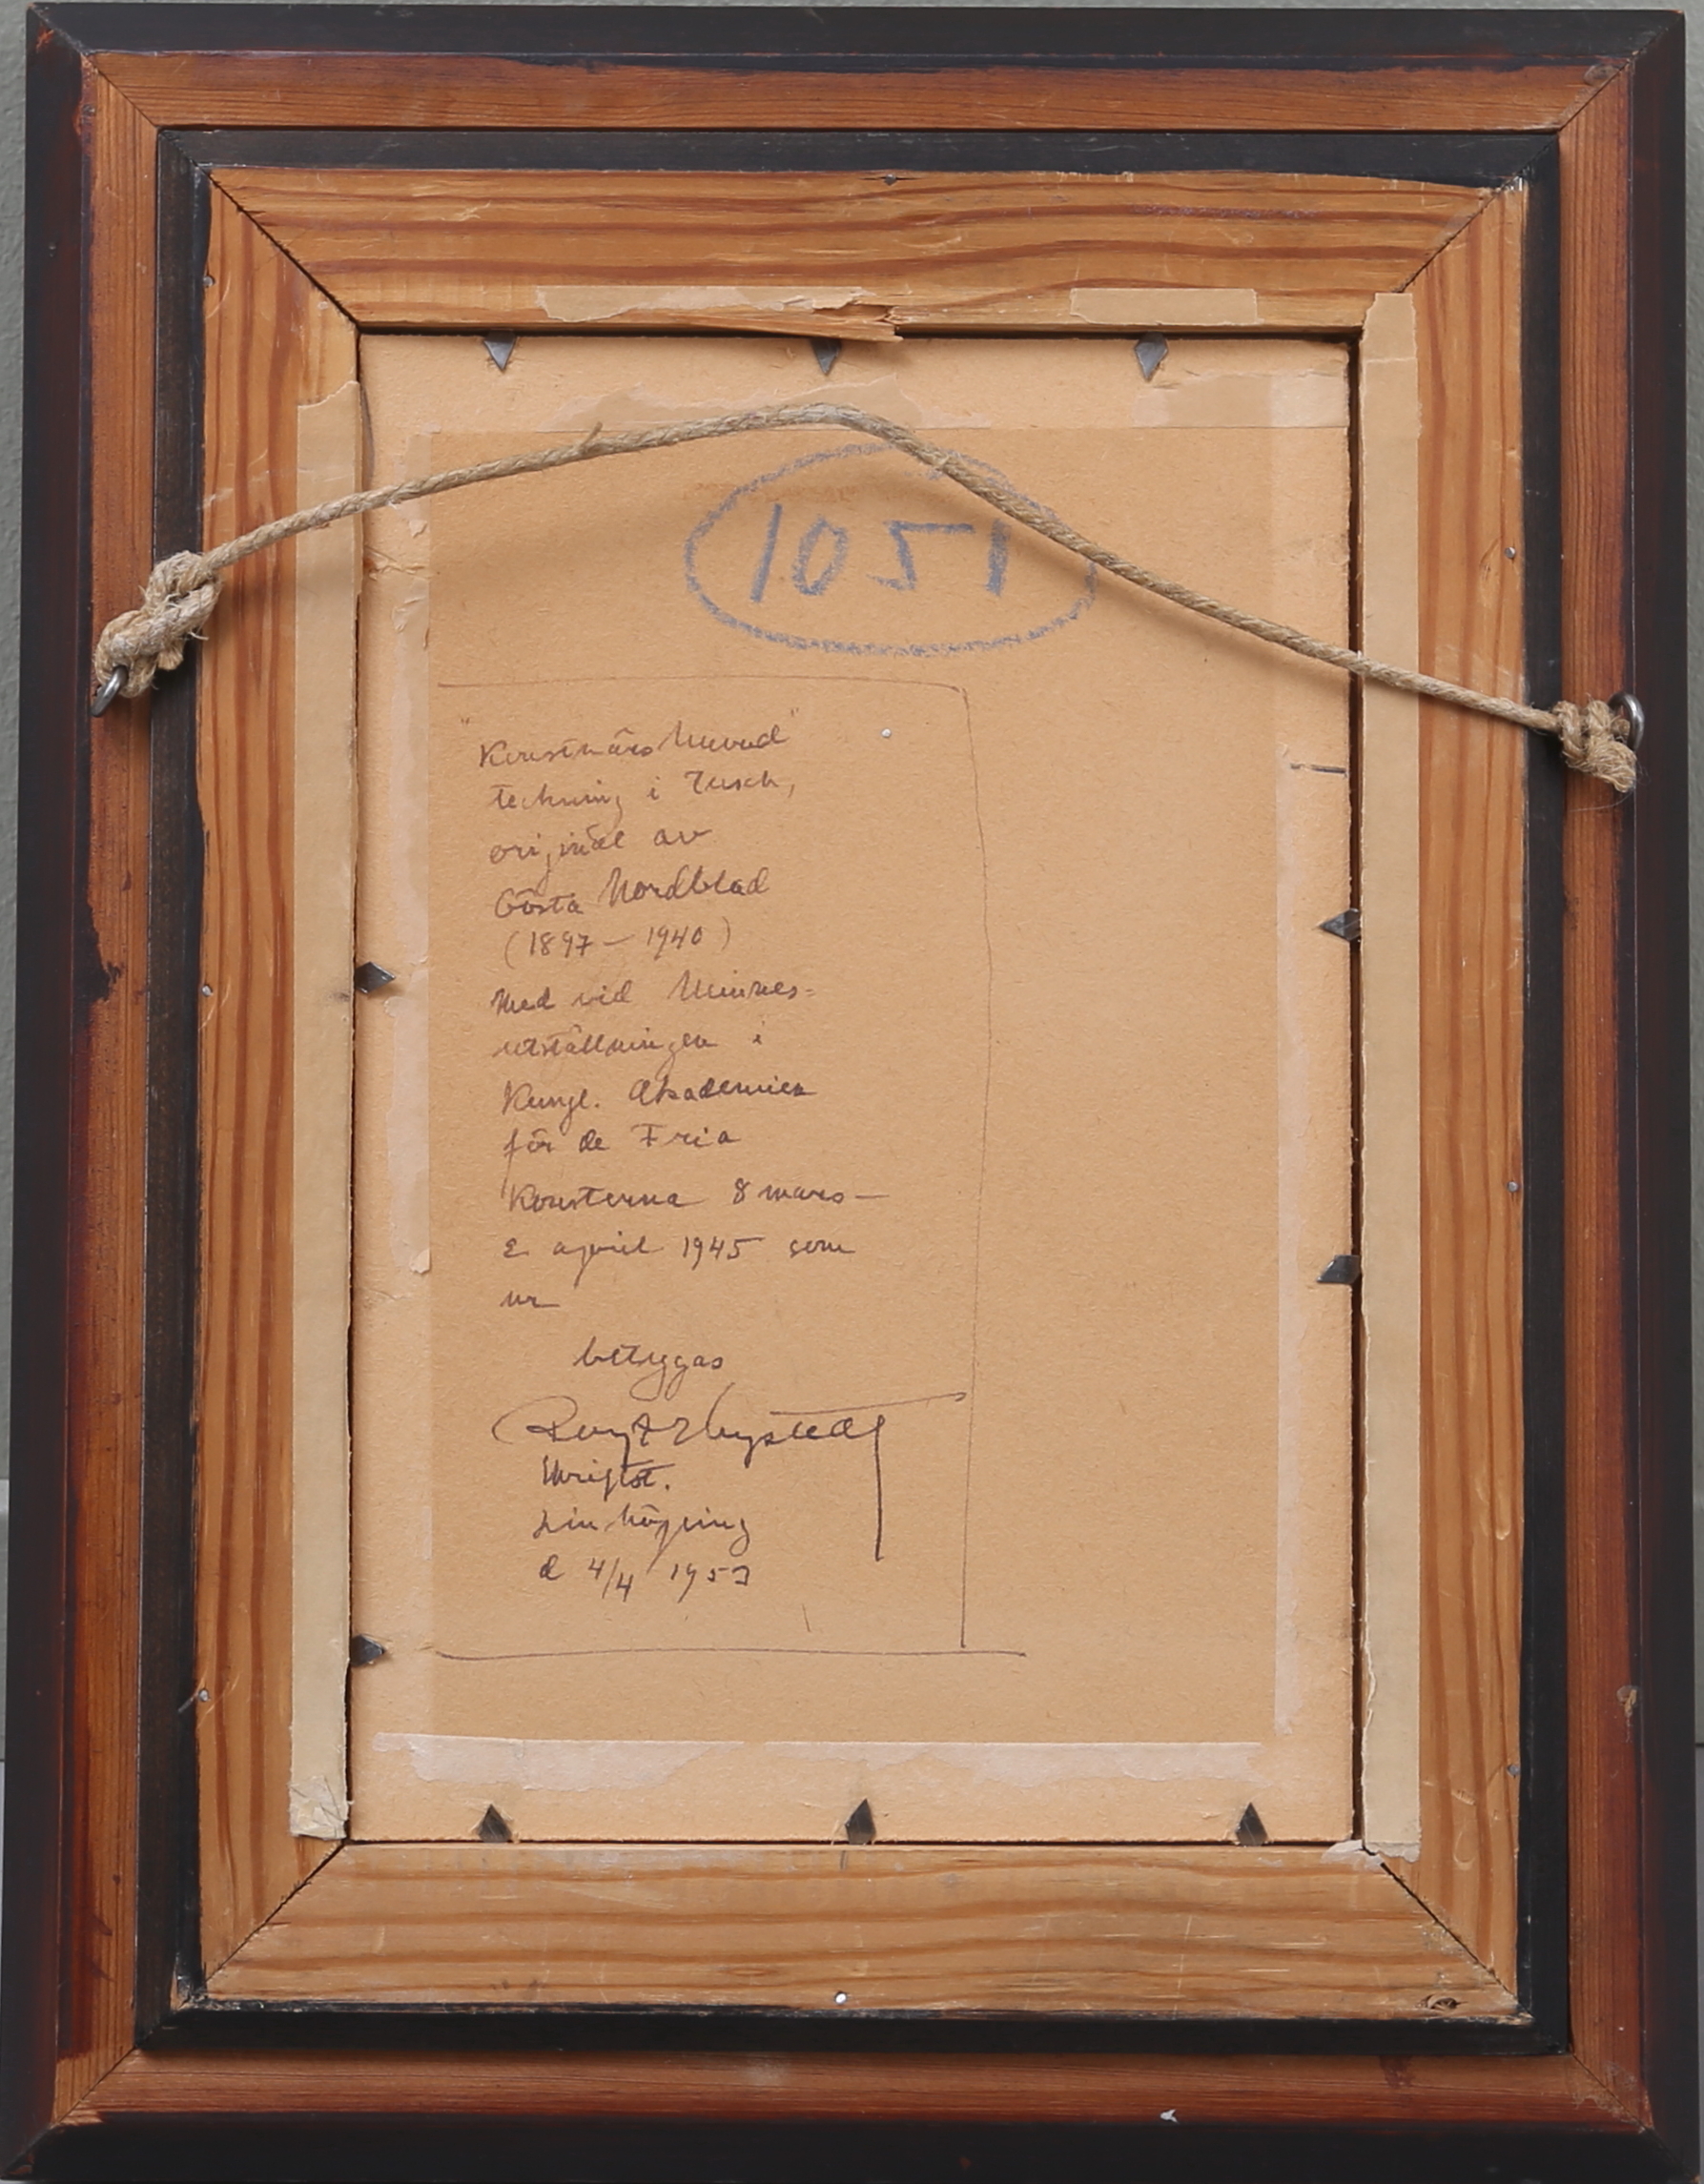 1051
"Konstnärshuvud"
teckning i Tusch,
original av
Gösta Nordblad
(1897 – 1940)
Med vid Minnes=
utställningen i
Kungl. Akademien
för de Fria
Konsterna 8 mars –
2 april 1945 som
nr
betygas
Linköping
d 4/4 1953